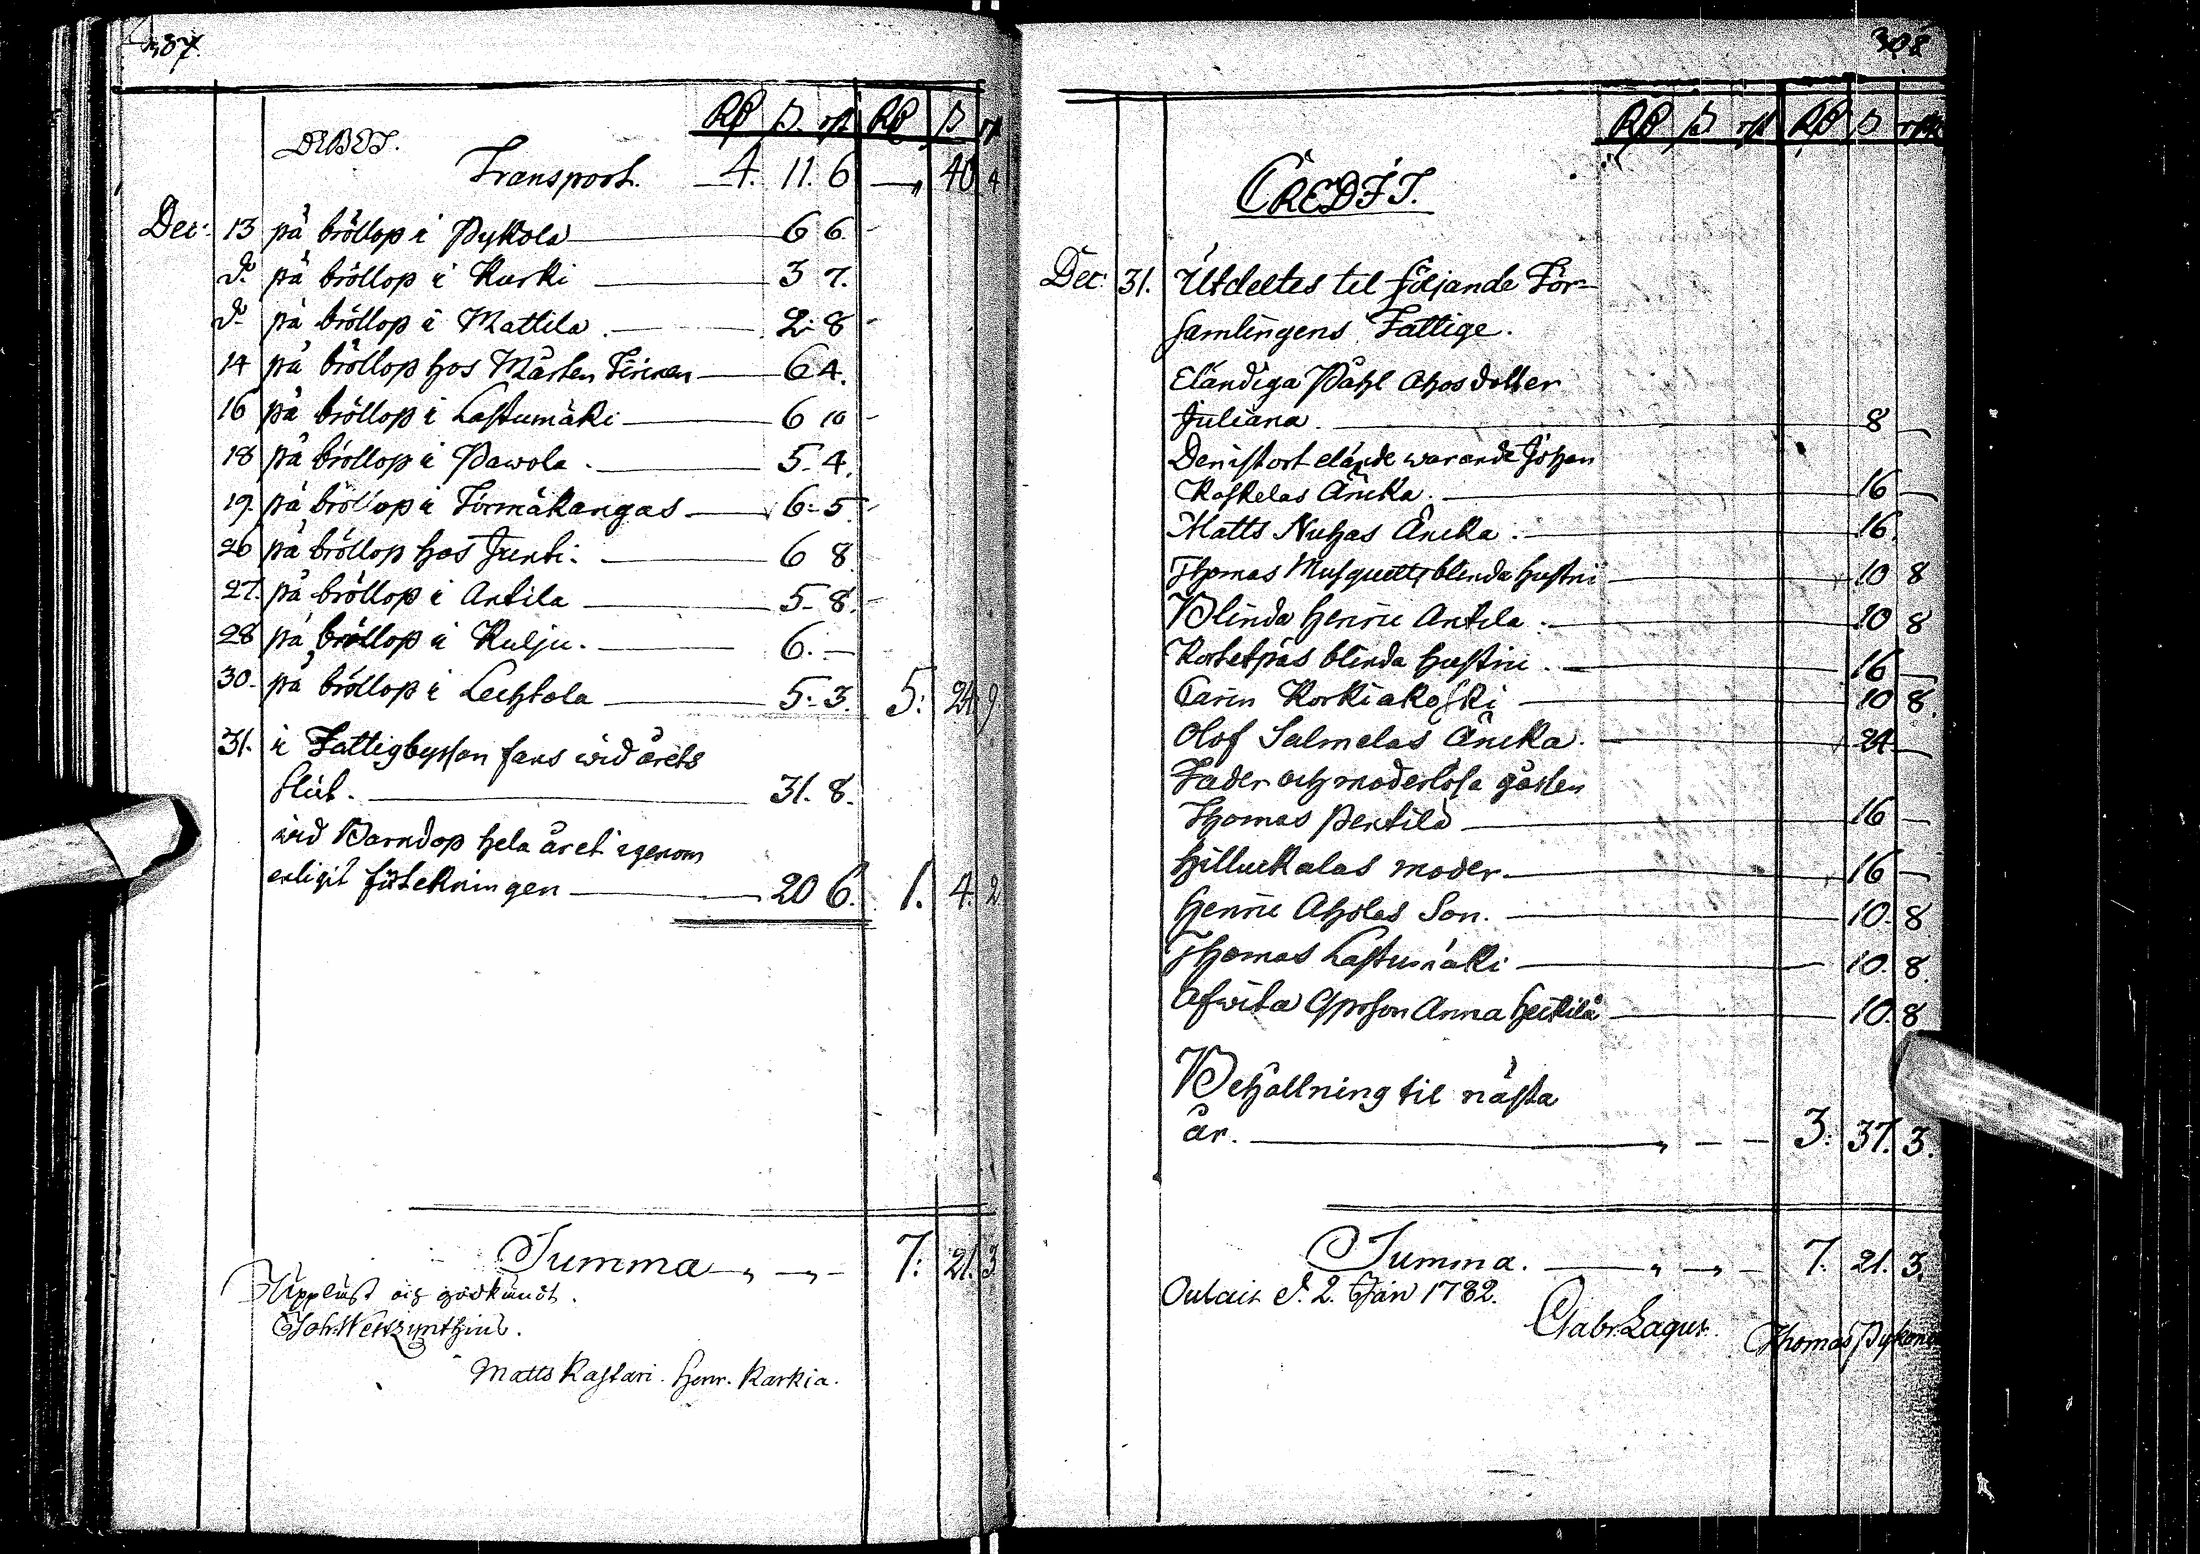 307.
DEBET.
Rd s. rst Rd s rst
Transport. 4. 11. 6 — 40 4
Dec: 13 på bröllop i Pykola 6 6.
d:o på bröllop i Kurki 3 7.
d:o på bröllop i Mattila. 2: 8
14 på bröllop hos Mårten 6 4.
16 på bröllop i Lastumäki 6 10
18 på bröllop i Pawola. 5. 4.
19. på bröllop i Törmäkangas 6: 5.
26 på bröllop hos Junti. 6 8.
27. på bröllop i Antila 5. 8.
28 på bröllop i Kulju. 6. —
30. på bröllop i Lechtola 5: 3. 5: 24 9
31. i Fattigbyssan fans wid årets
slut. 31. 8.
wid Barndop hela året igenom
enligit förtekningen 20 6. 1. 4. 2
Summa 7: 21. 3
Uppläst och godkändt.
Joh.
Matts Kastari. Henr. Karkia.
308
Rd s rst Rd s rst
CREDIT.
Dec: 31. Utdeltes til följande För-
samlingens Fattige.
Eländiga Påhl Ahos dotter
Juliana. 8 —
elände warande Johan
Koskelas Änka. 16 —
Matts Nuhas Änka. 16.
Thomas Musquetts blinda hustru 10 8
Blinda Henric Antila. 10 8
blinda hustru. 16 —
Carin Korkiakoski 10 8.
Olof Salmelas Änka. 24 —
Fader och moderlösa gossen
Thomas Pentilä 16 —
Hilluckalas moder. 16 —
Henric Aholas Son. 10. 8
Thomas Lastumäki 10. 8.
Afwita Anna Heikilä 10. 8
Behållning til nästa
år. 3: 37. 3.
Summa. 7. 21. 3.
Oulais d. 2. Jan 1782.
Gabr. Lagus.
Thomas